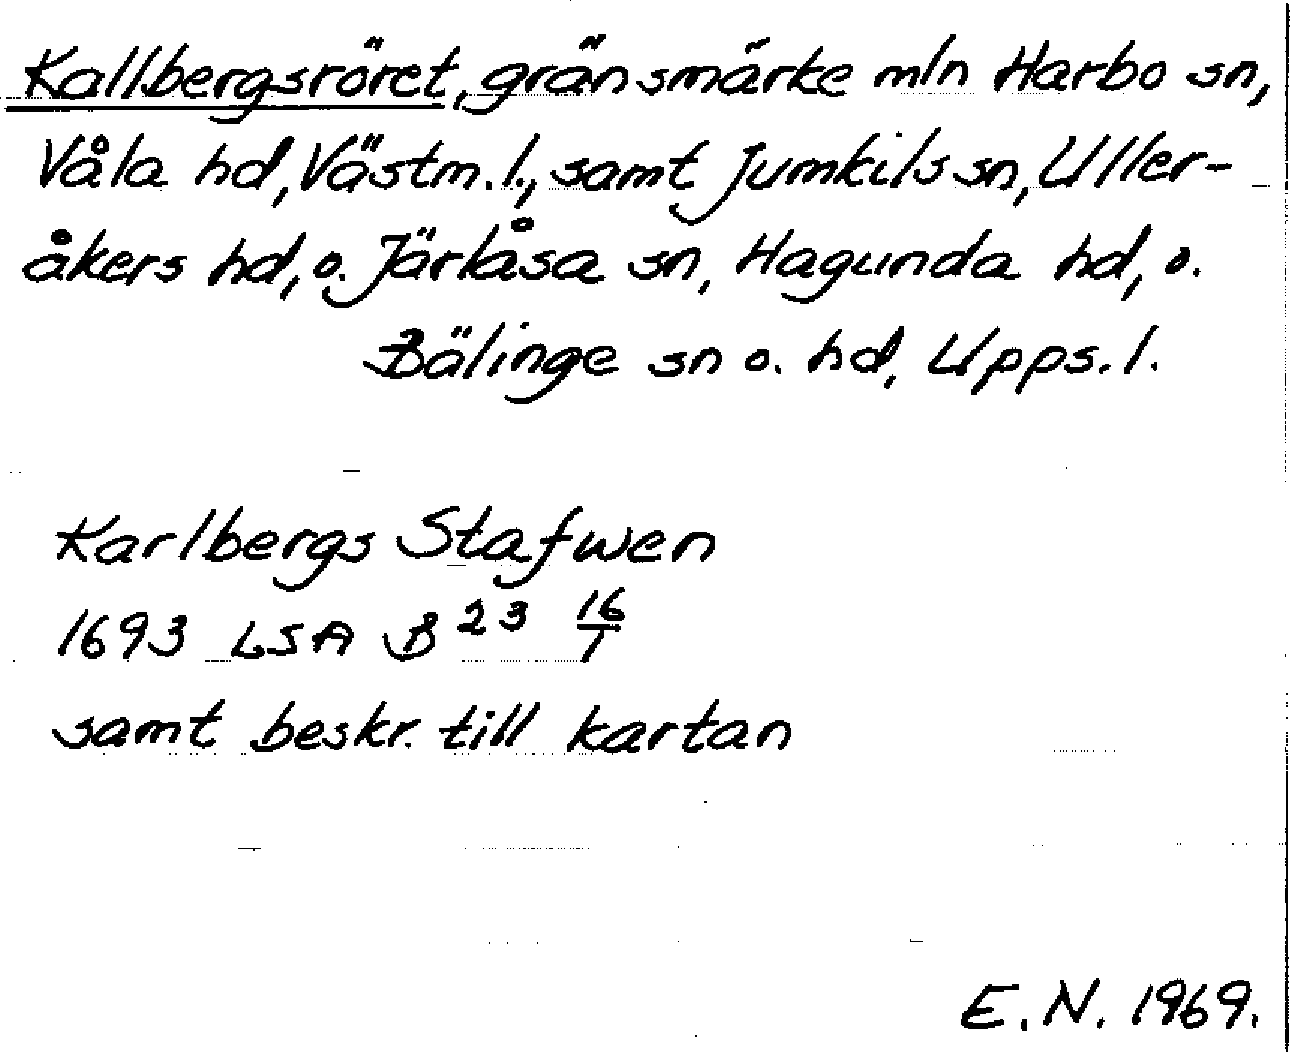 Kallbergsröret, gränsmärke mln Harbo sn,
Våla hd, Västm. l., samt Jumkils sn, Uller-
åkers hd, o. Järlåsa sn, Hagunda hd, o.
Bälinge sn o. hd, Upps. l.
Karlbergs Stafwen
1693 LSA B 23 16/1
samt beskr. till kartan
E. N. 1969.